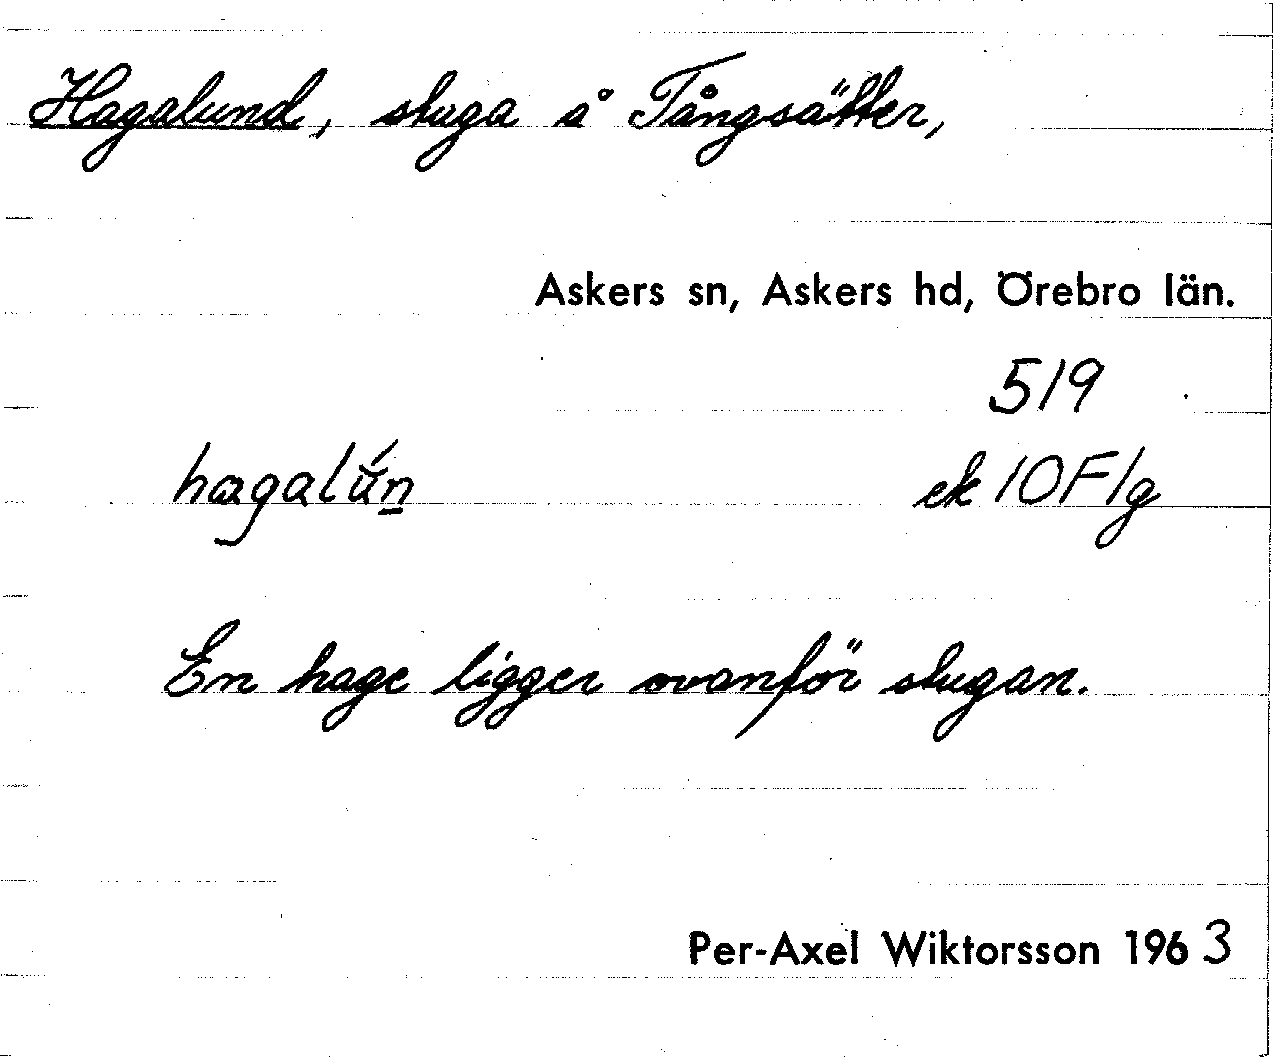 Hagalund, stuga å Tångsätter,
Askers sn, Askers hd, Örebro län.
519
hagalún̲
ek 10F1g
En hage ligger ovanför stugan.
Per-Axel Wiktorsson 1963